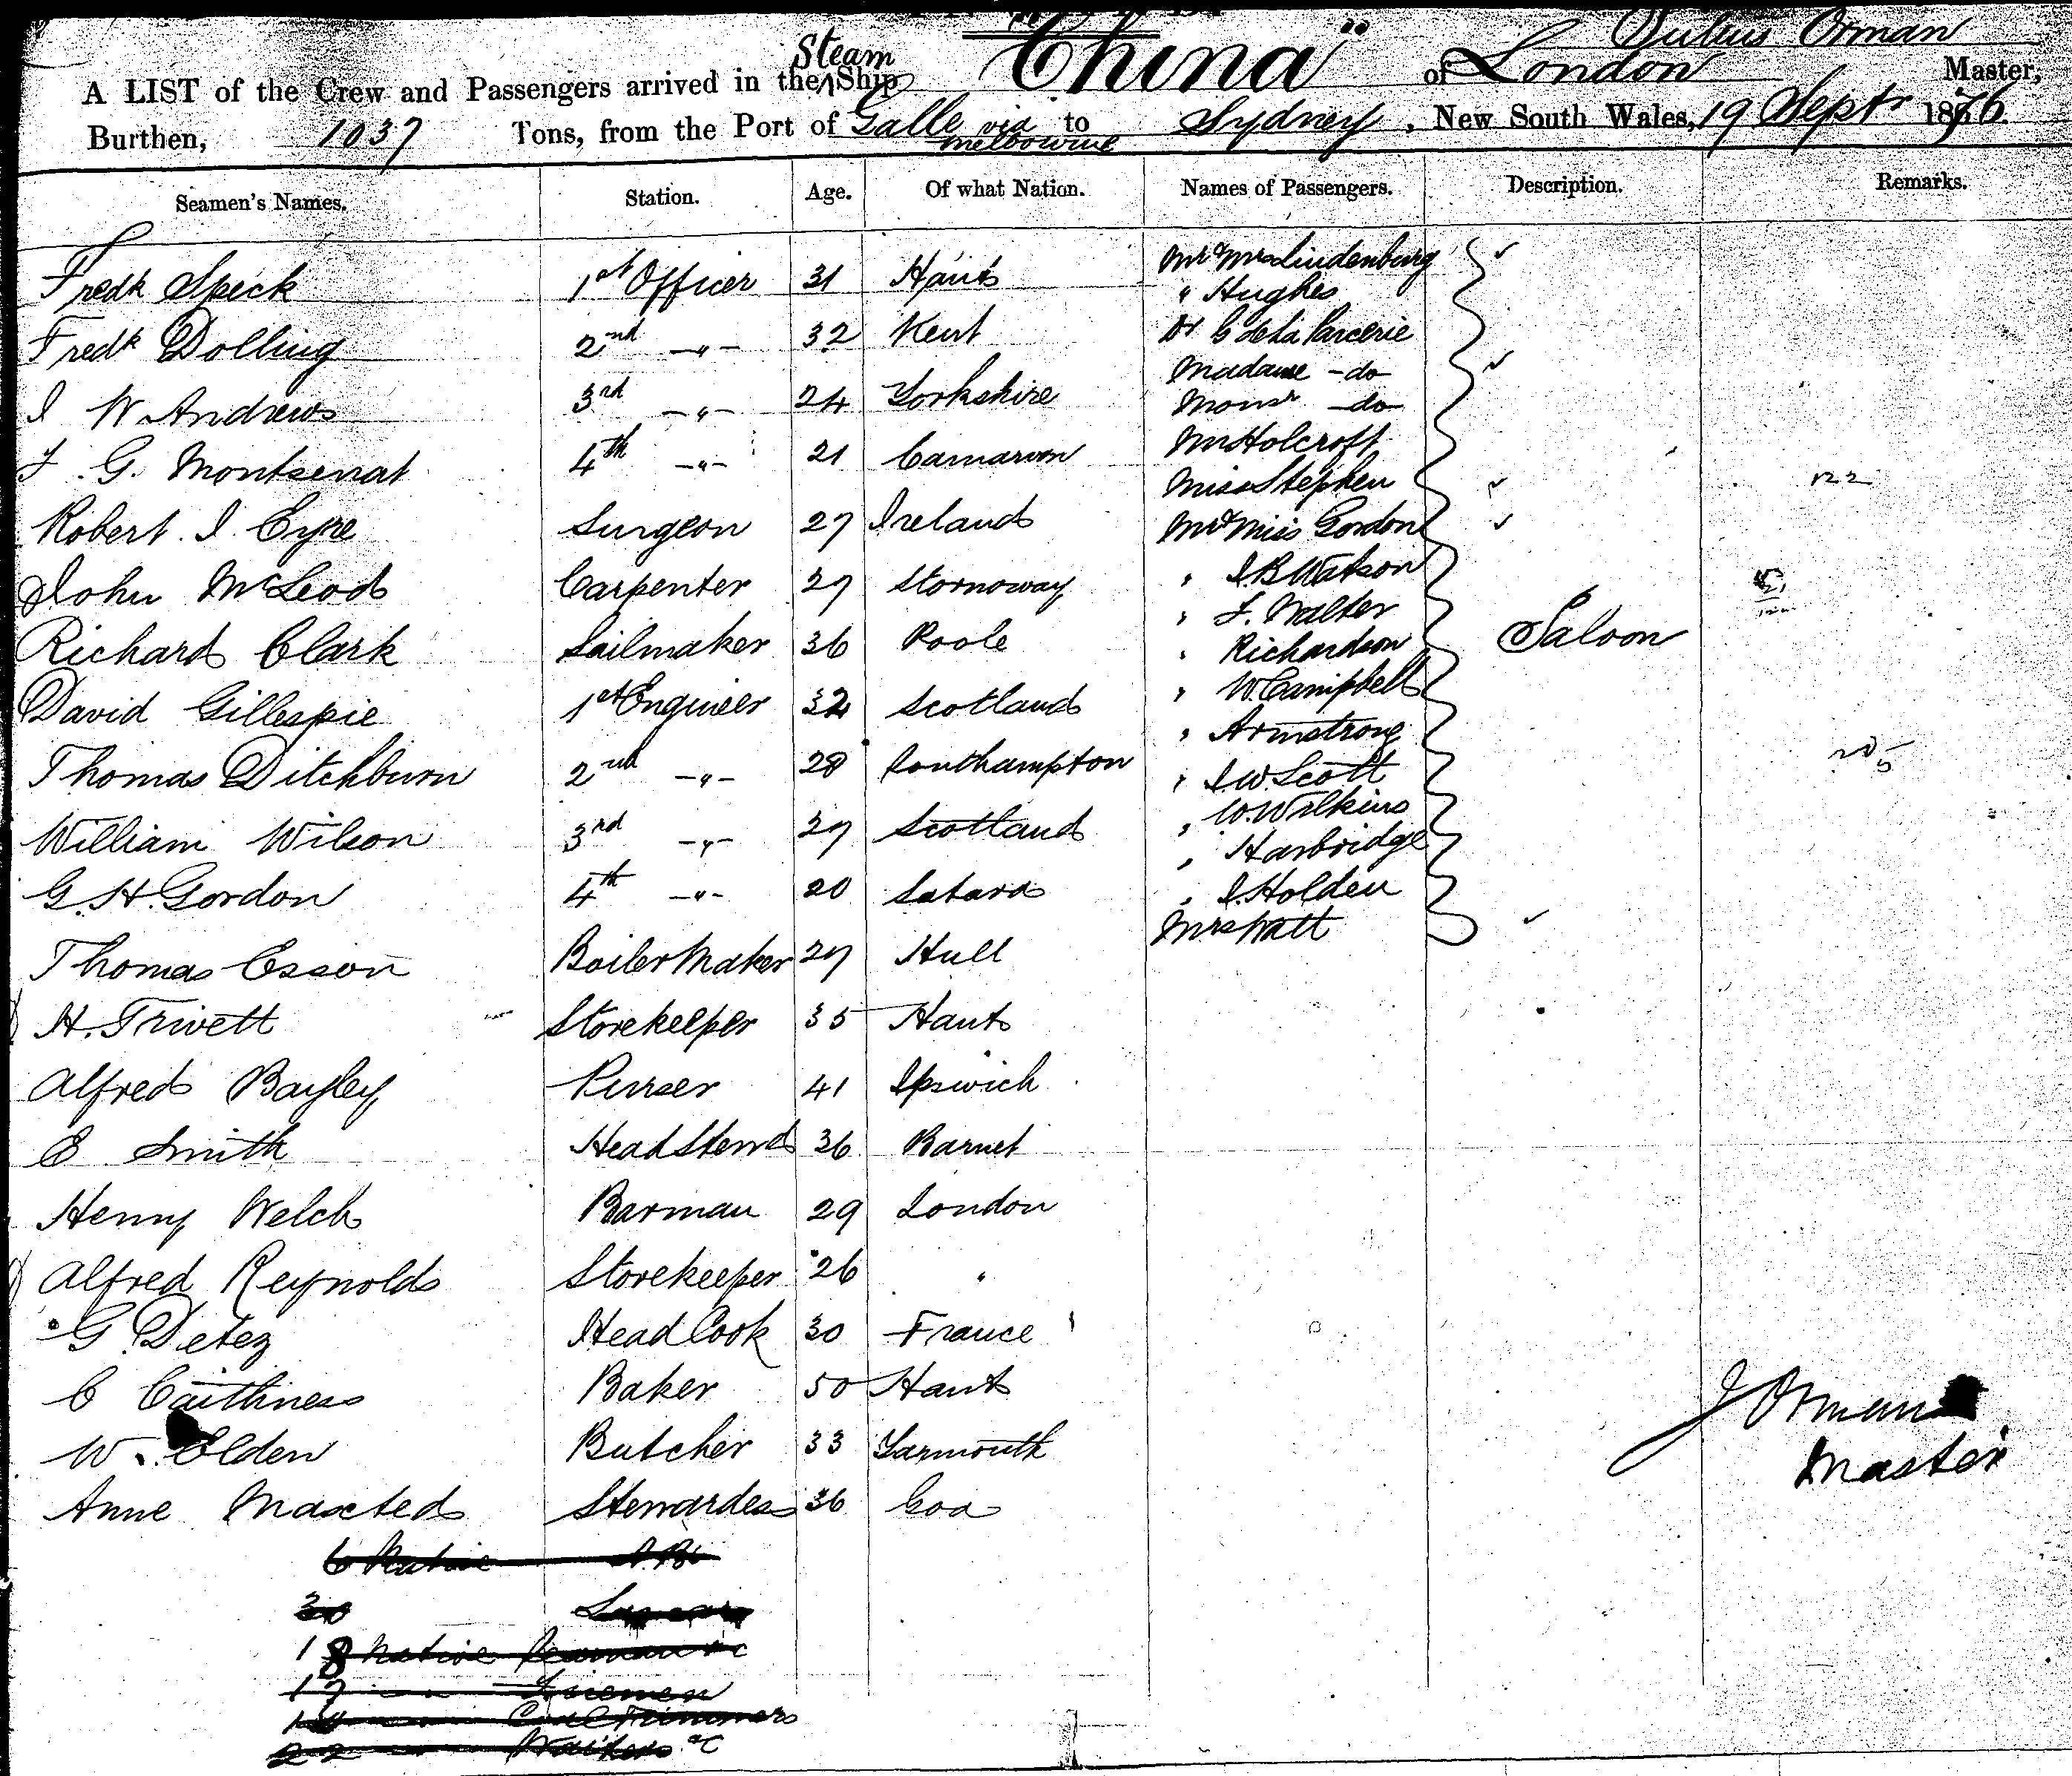 Julius Orman
A LIST of the Crew and Passengers arrived in the Steam Ship "China" of London Master,
Burthen, 1037 Tons, from the Port of Galle via Melbourne to Sydney, New South Wales, 19 Septr 1876
Seamen's Names. Station. Age. Of what Nation. Names of Passengers. Description. Remarks.
Fredk Speck 1st Officer 31 Hants
Fredk Dolling 2nd -"- 32 Kent
J W Andrews 3rd -"- 24 Yorkshire
F. G. Montserrat 4th -"- 21 Carnarvon
Robert J. Eyre Surgeon 27 Ireland
John McLeod Carpenter 27 Stornoway
Richard Clark Sailmaker 36 Poole
David Gillespie 1st Engineer 32 Scotland
Thomas Ditchburn 2nd -"- 28 Southampton
William Wilson 3rd -"- 27 Scotland
G. H. Gordon 4th -"- 20 Satara
Thomas Esson Boiler Maker 27 Hull
H. Trivett Storekeeper 35 Hants
Alfred Bayley Purser 41 Ipswich
E Smith Head Stewd 36 Barnet
Henry Welch Barman 29 London
Alfred Reynolds Storekeeper 26 "
G. Detez Head Cook 30 France
C Caithness Baker 50 Hants
W. Olden Butcher 33 Yarmouth
Anne Maxted Stewardess 36 Goa
6 Native
18 Native Seaman &c
17 Firemen
Coal Trimmers
22 Waiters &c
Mr & Mrs Lindenburg
" Hughes
Dr G de La Parcerie
Madame -do-
Monsr -do-
Mr Holcroft
Miss Stephen
Mr & Miss Gordon
" J. B. Watson
" F. Walter
" Richardson
" W Campbell
" Armstrong
" J. W. Scott
" W. Wilkins
" Harbridge
" J. Holden
Mrs Watt
Saloon
J Orman
Master